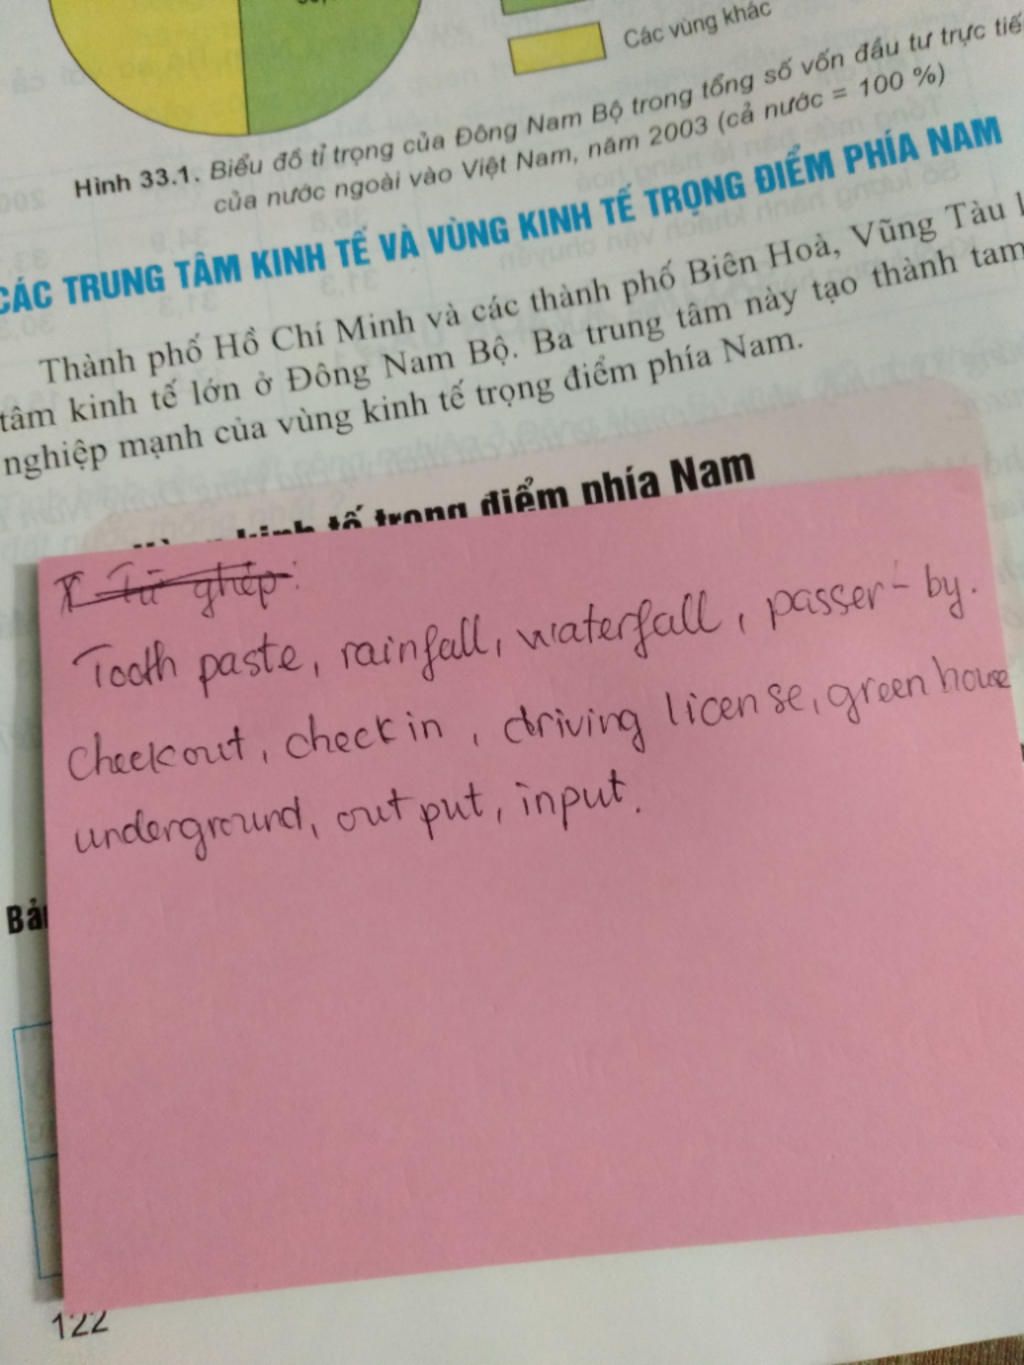 Các vùng khác
Hình 33.1. Biểu đồ tỉ trọng của Đông Nam Bộ trong tổng số vốn đầu tư trực tiế
của nước ngoài vào Việt Nam, năm 2003 (cả nước = 100 %)
CÁC TRUNG TÂM KINH TẾ VÀ VÙNG KINH TẾ TRỌNG ĐIỂM PHÍA NAM
Thành phố Hồ Chí Minh và các thành phố Biên Hoà, Vũng Tàu l
tâm kinh tế lớn ở Đông Nam Bộ. Ba trung tâm này tạo thành tam
nghiệp mạnh của vùng kinh tế trọng điểm phía Nam.
kinh tế trọng điểm phía Nam
Từ ghép:
Tooth paste, rainfall, waterfall, passer-by.
Checkout, check in, driving license, green house
underground, out put, input.
Bả
122